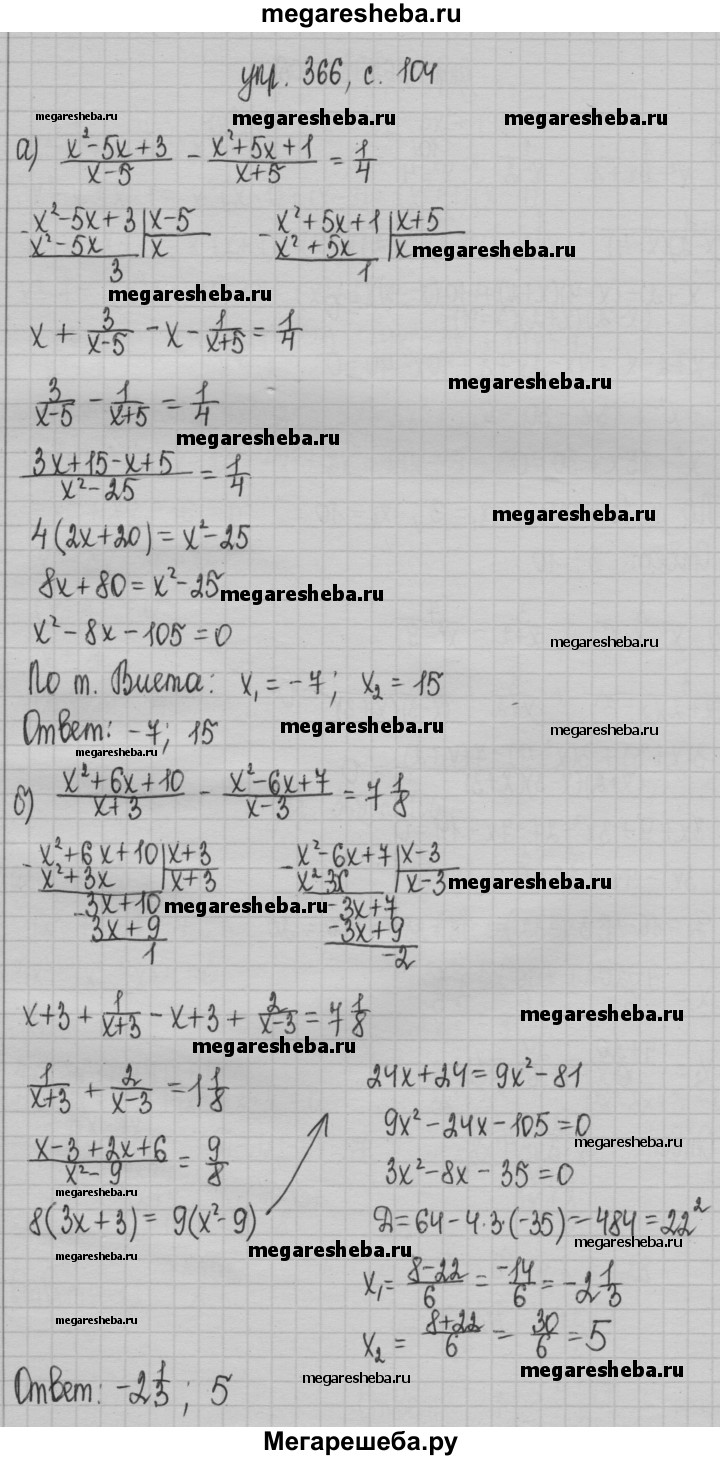 megaresheba.ru
упр. 366, с. 104
megaresheba.ru megaresheba.ru megaresheba.ru
а) (x²-5x+3)/(x-5) - (x²+5x+1)/(x+5) = 1/4
x²-5x+3 | x-5 x²+5x+1 | x+5
- x²-5x | x - x²+5x | x megaresheba.ru
3 1
megaresheba.ru
x + 3/(x-5) - x - 1/(x+5) = 1/4
3/(x-5) - 1/(x+5) = 1/4 megaresheba.ru
megaresheba.ru
(3x+15-x+5)/(x²-25) = 1/4
megaresheba.ru
4(2x+20) = x²-25
8x+80 = x²-25 megaresheba.ru
x²-8x-105=0 megaresheba.ru
По т. Виета: x₁ = -7; x₂ = 15
Ответ: -7; 15 megaresheba.ru megaresheba.ru
megaresheba.ru
б) (x²+6x+10)/(x+3) - (x²-6x+7)/(x-3) = 7 1/8
x²+6x+10 | x+3 x²-6x+7 | x-3
- x²+3x | x+3 - x²-3x | x-3 megaresheba.ru
- 3x+10 megaresheba.ru -3x+7
3x+9 -3x+9
1 -2
x+3 + 1/(x+3) - x+3 + 2/(x-3) = 7 1/8 megaresheba.ru
megaresheba.ru
1/(x+3) + 2/(x-3) = 1 1/8
(x-3+2x+6)/(x²-9) = 9/8
megaresheba.ru
8(3x+3) = 9(x²-9)
24x+24 = 9x²-81
9x²-24x-105=0
megaresheba.ru
3x²-8x-35=0
Д=64-4·3·(-35)=484=22²
megaresheba.ru megaresheba.ru megaresheba.ru
x₁ = (8-22)/6 = -14/6 = -2 1/3
megaresheba.ru
x₂ = (8+22)/6 = 30/6 = 5
megaresheba.ru megaresheba.ru
Ответ: -2 1/3; 5
Мегарешеба.ру